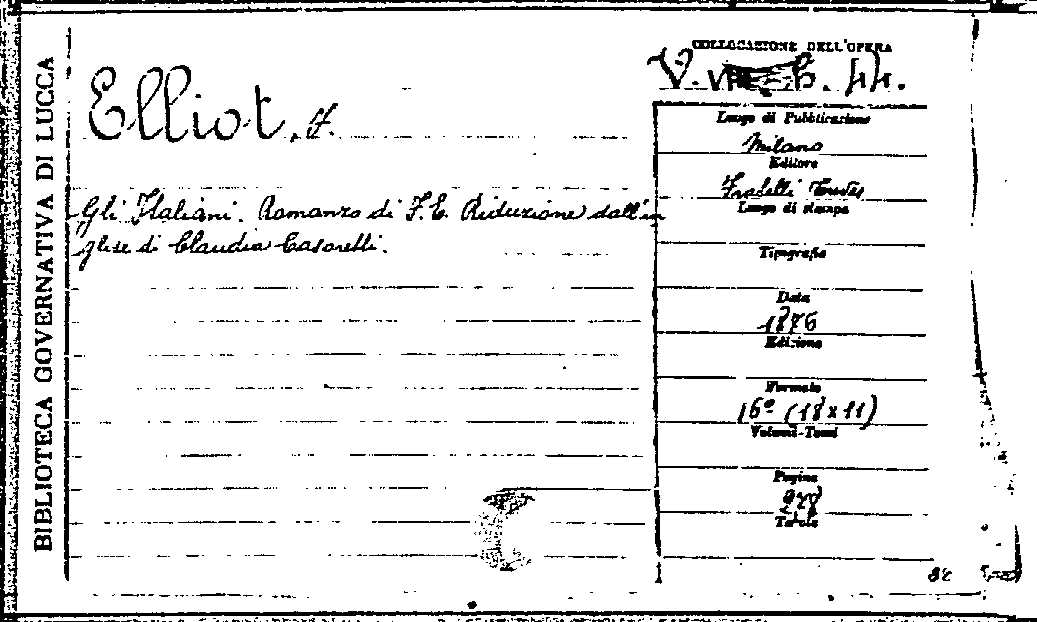 BIBLIOTECA GOVERNATIVA DI LUCCA
Elliot, F.
Gli Italiani. Romanzo di F. E. Riduzione dall'in
glese di Claudia Casoretti.
COLLOCAZIONE DELL'OPERA
V. b. 44.
Luogo di Pubblicazione
Milano
Editore
Fratelli Treves
Luogo di stampa
Tipografia
Data
1876
Edizione
Formato
16° (18 x 11)
Volumi-Tomi
Pagine
Tavole